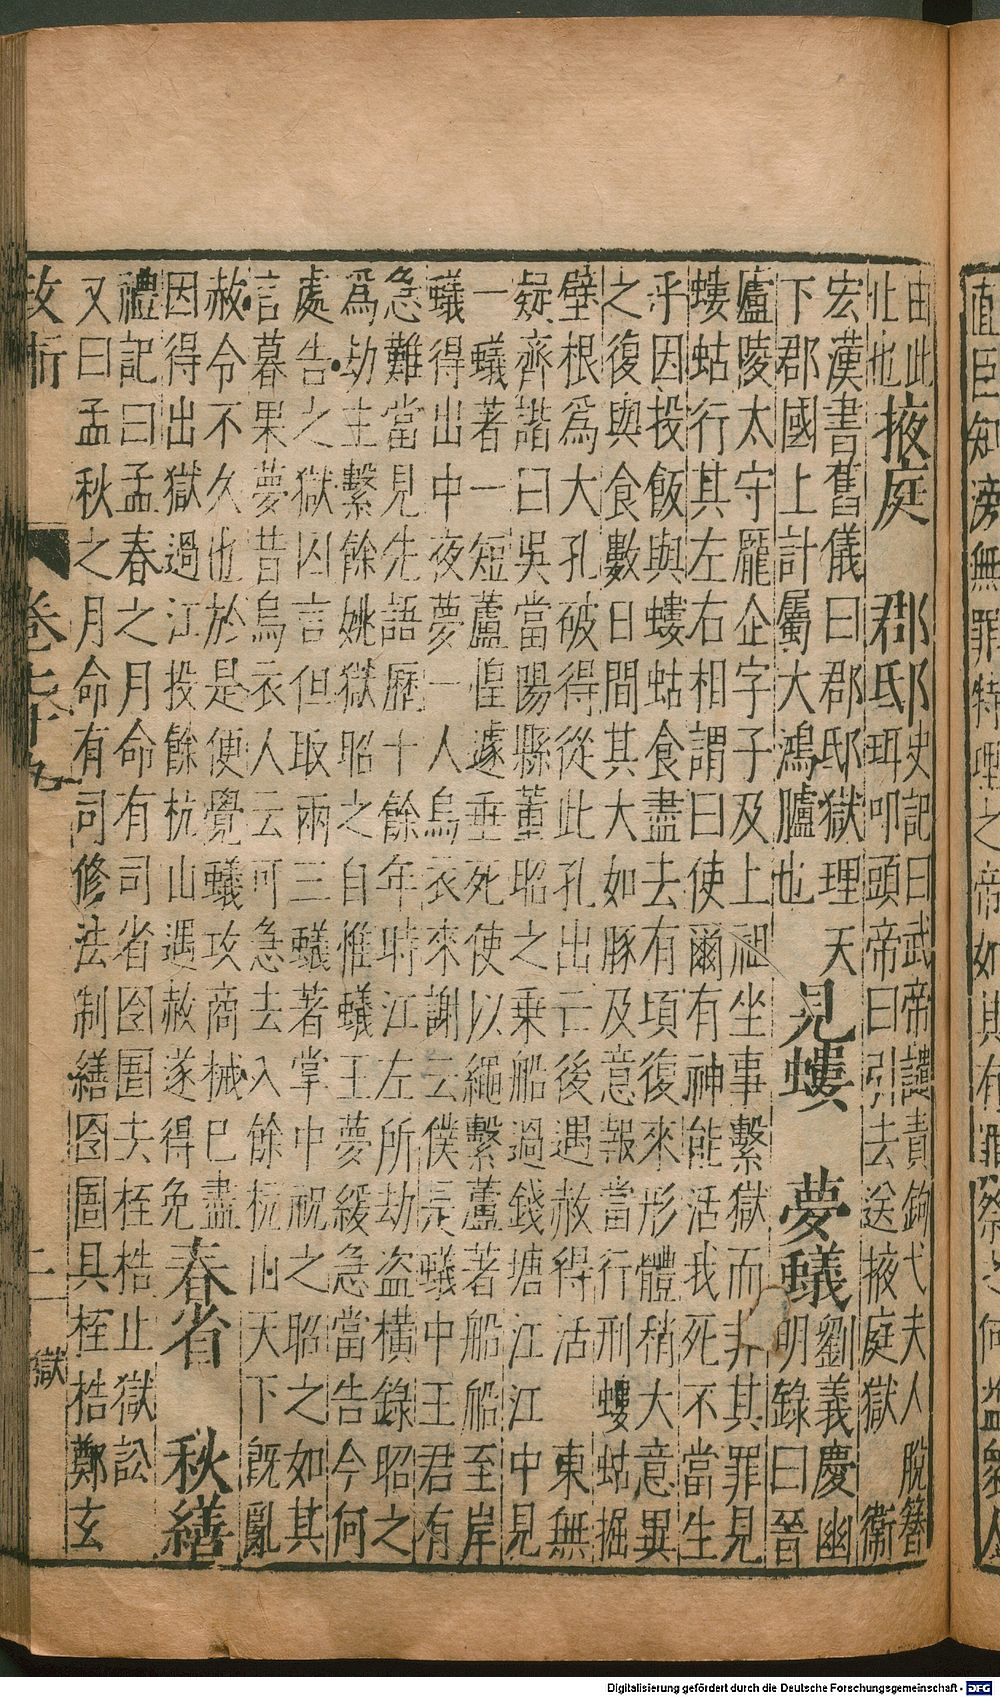 直臣知滂無罪特理之帝如其有罪祭之何益眾人
由此
止也
掖庭
郡邸
史記曰武帝譴責鉤弋夫人脫簪
珥叩頭帝曰引去送掖庭獄 衛
宏漢書舊儀曰郡邸獄理天
下郡國上計屬大鴻臚也
見螻
夢蟻
劉義慶幽
明錄曰晉
廬陵太守龎企字子及上祖坐事繫獄而非其罪見
螻蛄行其左右相謂曰使爾有神能活我死不當生
乎因投飯與螻蛄食盡去有頃復來形體稍大意異
之復與食數日間其大如豚及意報當行刑螻蛄掘
壁根爲大孔破得從此孔出亡後遇赦得活 東無
疑齊諧曰吳當陽縣董昭之乗船過錢塘江江中見
一蟻著一短蘆惶遽垂死使以繩繫蘆著船船至岸
蟻得出中夜夢一人烏衣來謝云僕是蟻中王君有
急難當見先語歷十餘年時江左所劫盗橫錄昭之
爲劫主繫餘姚獄昭之自惟蟻王夢緩急當告今何
處告之獄囚言但取兩三蟻著掌中祝之昭之如其
言暮果夢昔烏衣人云可急去入餘杭山天下既亂
赦令不久也於是便覺蟻攻商械巳盡
因得出獄過江投餘杭山遇赦遂得免
春省
秋繕
禮記曰孟春之月命有司省囹圄去桎梏止獄訟
又曰孟秋之月命有司修法制繕囹圄具桎梏鄭玄
卷七十九 獄 二
Digitalisierung gefördert durch die Deutsche Forschungsgemeinschaft - DFG